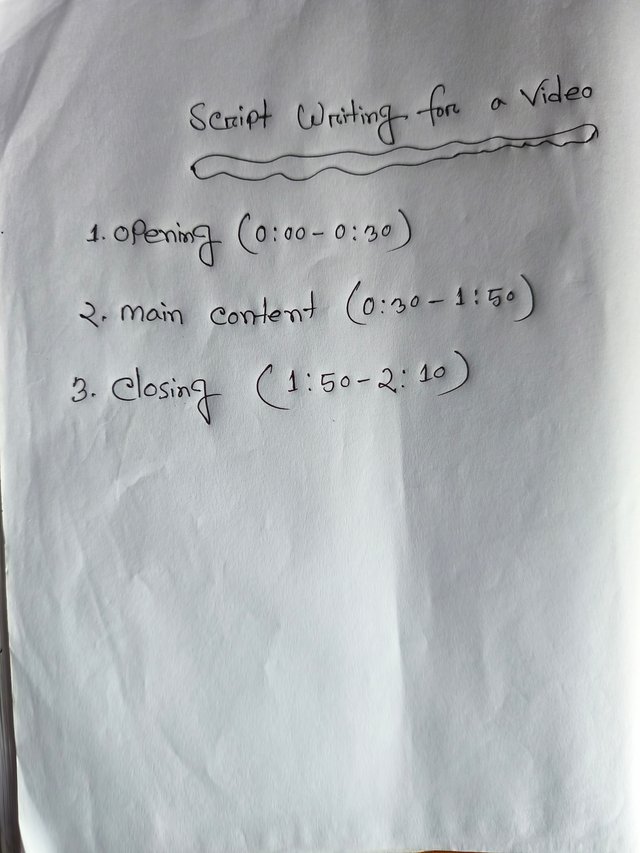 Script Writing for a Video
1. opening (0:00 - 0:30)
2. main content (0:30 - 1:50)
3. closing (1:50 - 2:10)